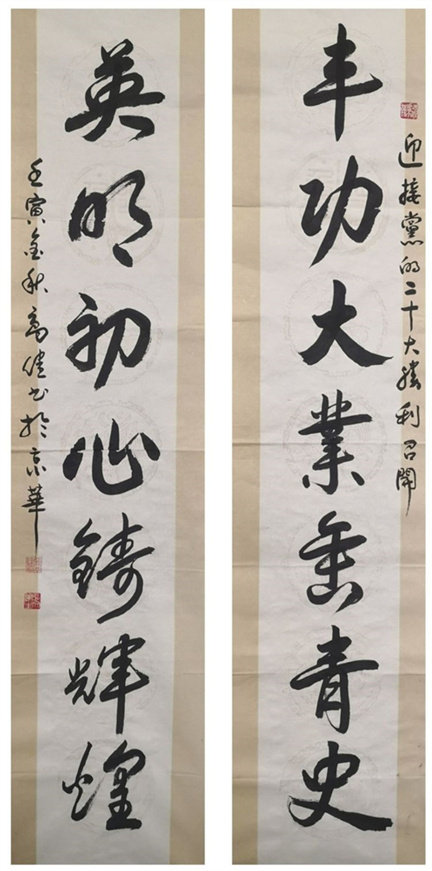 迎接黨的二十大勝利召開
丰功大業垂青史
英明初心鑄輝煌
壬寅金秋高佳书於京華